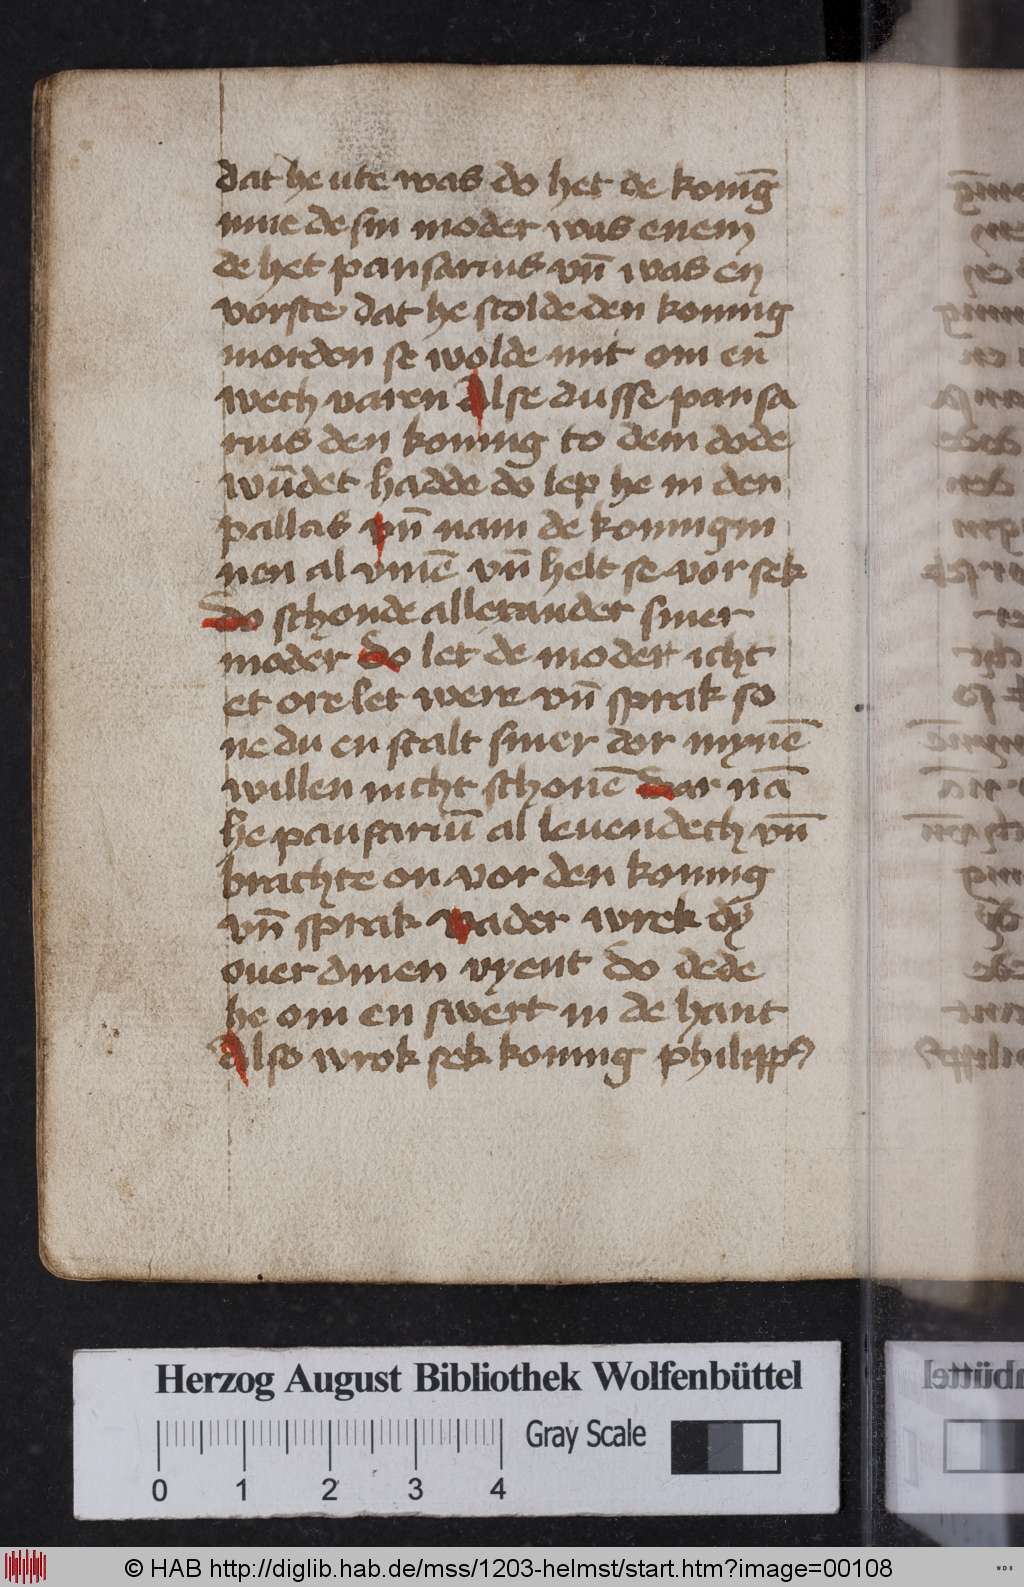 dat he ute was do het de konīg
inne de sin moder was enem
de het pansarius vn̄ was en
vorste dat he scolde den koning
morden se wolde mit om en
wech varen Alse dusse pansa
rius den koning to dem dode
wūdet hadde do lep he in den
pallas vn̄ nam de koningin
nen al vmē vn̄ helt se vor sek
do schonde allexander siner
moder do let de moder icht
et ore let were vn̄ sprak so
ne du en scalt siner dor mynē
willen nicht schonē dar nā
he pansariū al leuendech vn̄
brachte on vor den koning
vn̄ sprak vader wrek dy
ouer dinen vyent do dede
he om en swert in de hant
Also wrok sek koning philipp9
Herzog August Bibliothek Wolfenbüttel
Gray Scale
0 1 2 3 4
© HAB http://diglib.hab.de/mss/1203-helmst/start.htm?image=00108